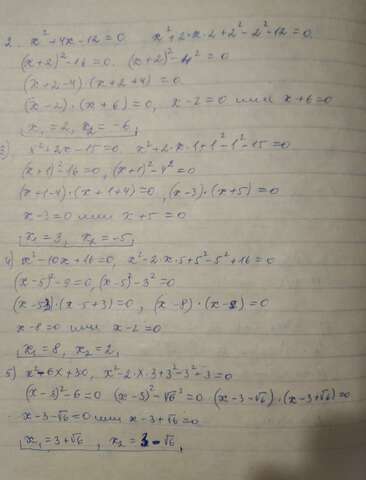 2. x²+4x-12=0 x²+2·x·2+2²-2²-12=0.
(x+2)²-16=0. (x+2)²-4²=0
(x+2-4)·(x+2+4)=0
(x-2)·(x+6)=0, x-2=0 или x+6=0
x₁=2, x₂=-6,
3) x²+2x-15=0, x²+2·x·1+1²-1²-15=0
(x+1)²-16=0, (x+1)²-4²=0
(x+1-4)·(x+1+4)=0, (x-3)·(x+5)=0
x-3=0 или x+5=0
x₁=3, x₂=-5,
4) x²-10x+16=0, x²-2·x·5+5²-5²+16=0
(x-5)²-9=0, (x-5)²-3²=0
(x-53)·(x-5+3)=0, (x-8)·(x-2)=0
x-8=0 или x-2=0
x₁=8, x₂=2,
5) x²-6x+30, x²-2·x·3+3²-3²+3=0
(x-3)²-6=0 (x-3)²-√6²=0 (x-3-√6)·(x-3+√6)=0
x-3-√6=0 или x-3+√6=0
x₁=3+√6, x₂=3-√6,